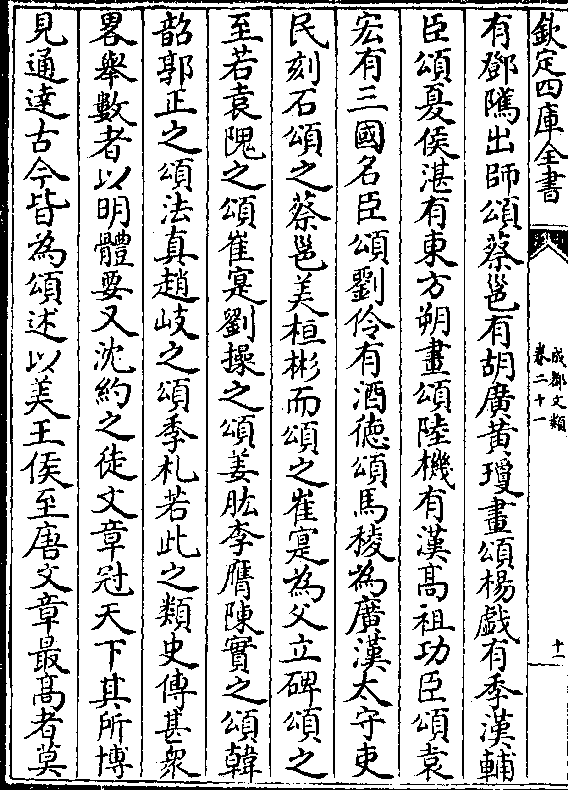 欽定四庫全書
成都文類
卷二十一
十一
有鄧隲出師頌蔡邕有胡廣黃瓊畫頌楊戯有季漢輔
臣頌夏侯湛有東方朔畫頌陸機有漢髙祖功臣頌袁
宏有三國名臣頌劉伶有酒徳頌馬稜為廣漢太守吏
民刻石頌之蔡邕美桓彬而頌之崔寔為父立碑頌之
至若袁隗之頌崔寔劉操之頌姜肱李膺陳實之頌韓
韶郭正之頌法真趙岐之頌季札若此之類史傳甚衆
畧舉數者以明體要又沈約之徒文章冠天下其所博
見通逹古今皆為頌述以美王侯至唐文章最髙者莫